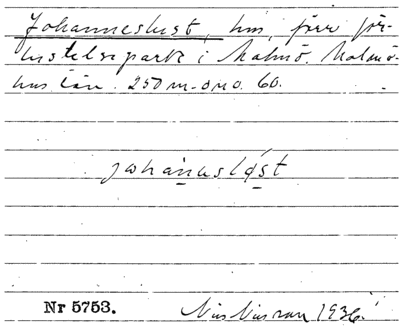 Johanneslust, hus, förr för-
lustelsepark i Malmö. Malmö-
hus län. 250 m. ö m o. 60.
johànuslǿst
Nr 5753.
1936.